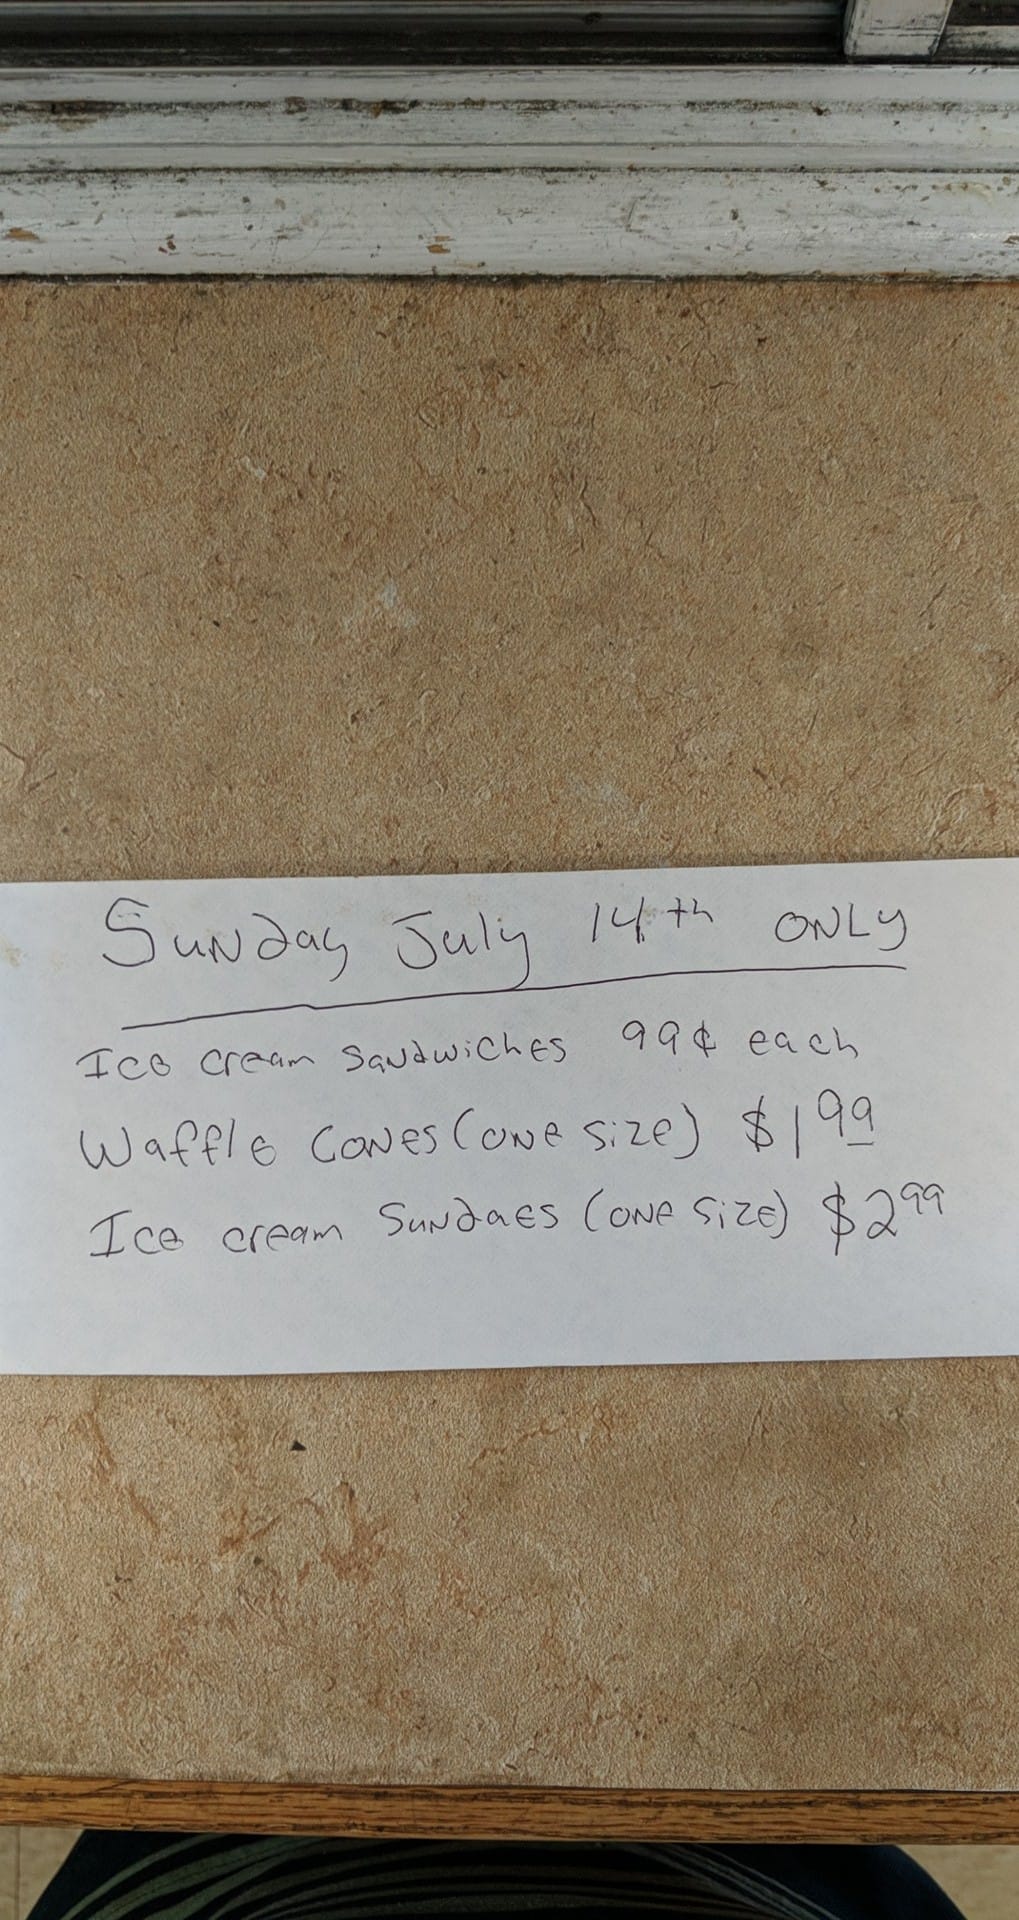 Sunday July 14th ONLY
Ice cream Sandwiches 99¢ each
Waffle Cones (one size) $1 99
Ice cream Sundaes (one size) $2 99